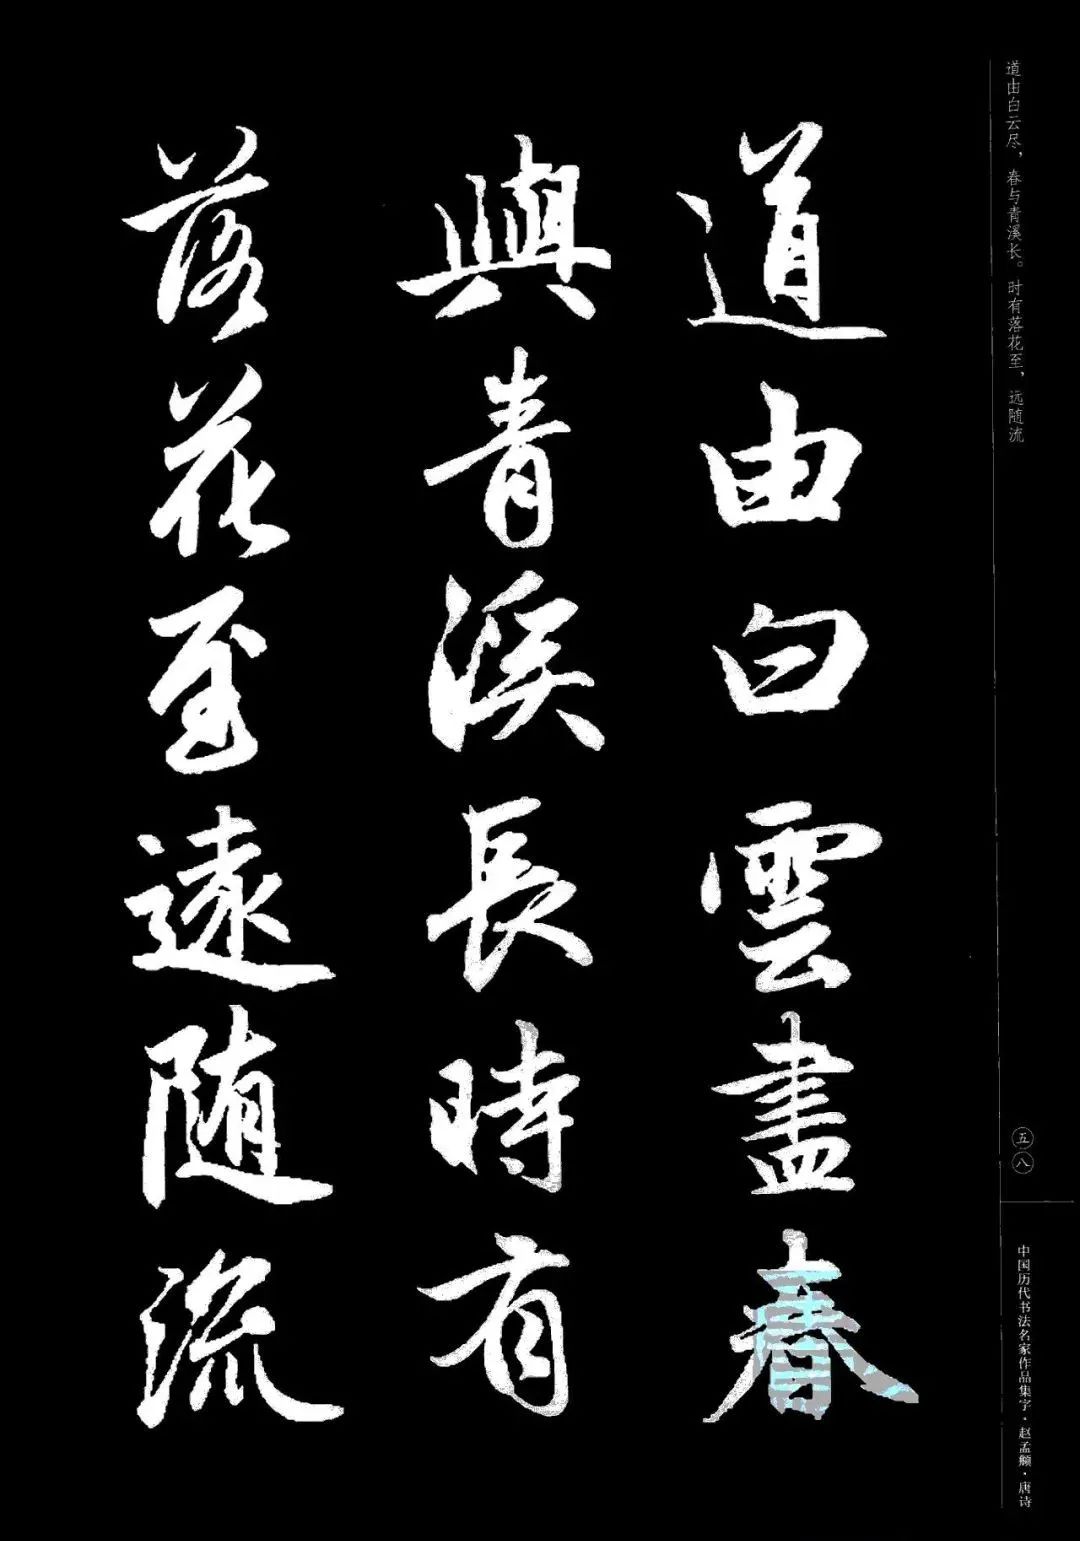 道由白云尽，春与青溪长。时有落花至，远随流
道由白雲盡春
與青溪長時有
落花至遠随流
五八
中国历代书法名家作品集字·赵孟頫·唐诗